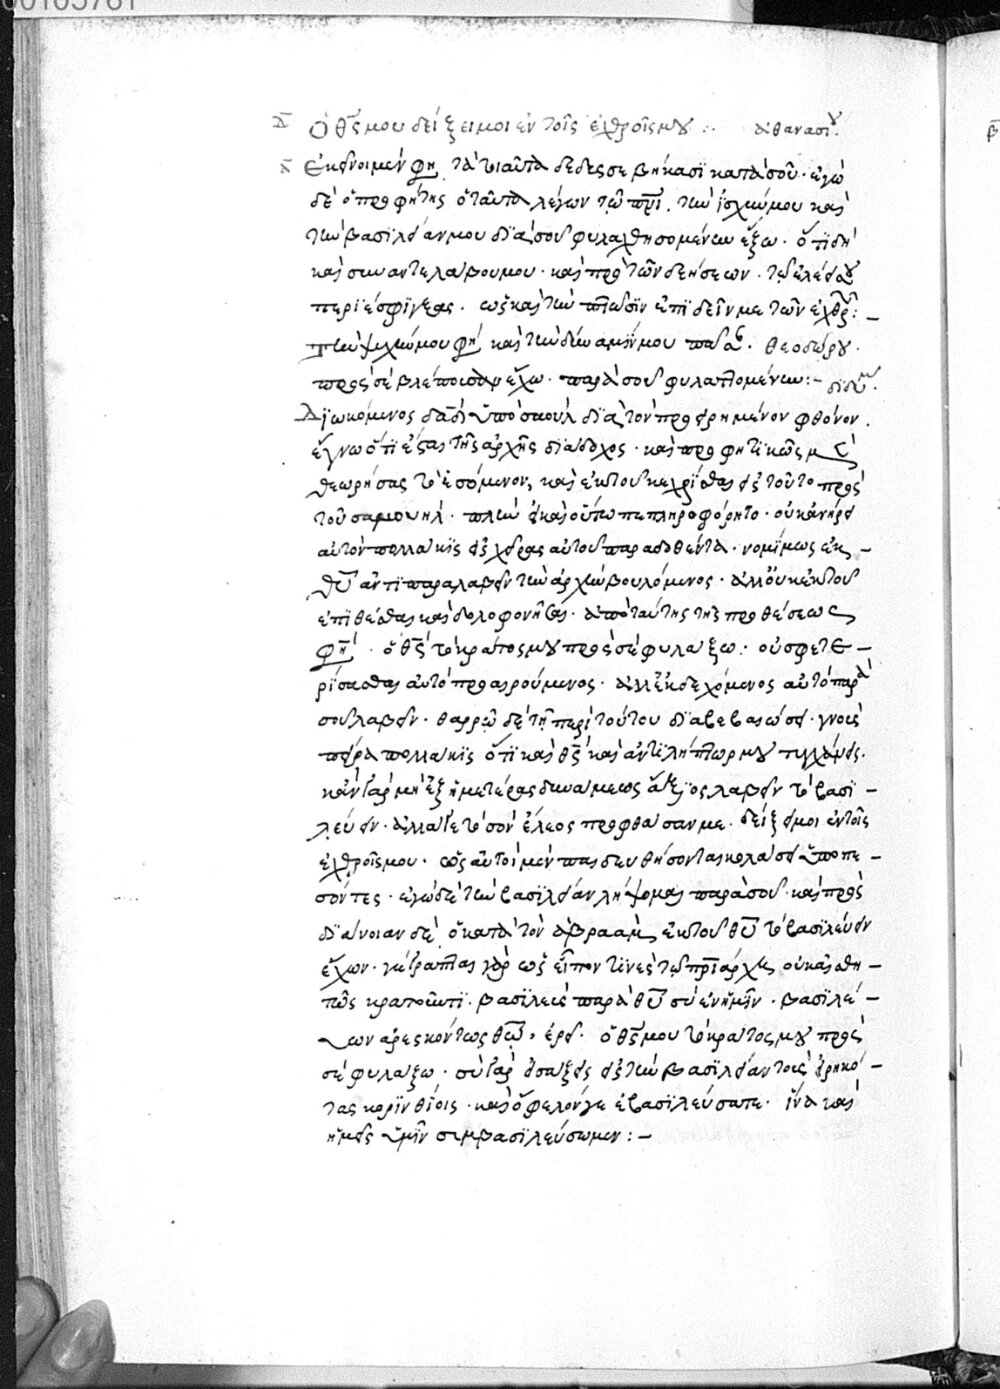 00105761
ὁ θς μου δείξει μοι ἐν τοῖς ἐχθροῖς μου :. ἀθανασίου.
Ἐκεῖνοι μέν φη τὰ τοιαῦτα κατὰ σοῦ· ἐγὼ
δὲ ὁ προφήτης ὁ ταῦτα λέγων τῷ πρι. τὴν ἰσχύν μου καὶ
τὴν βασιλείαν μου διὰ σοῦ φυλαχθησομένην ἕξω· ὅτι δὴ
καὶ συναντελάβου μου· καὶ πρὸ τῶν δεήσεων· τῷ ἐλέει σου
περιέσφιγξας· ὡς καὶ τὴν πτῶσιν ἐπιδεῖν με τῶν ἐχθρ :-
τὴν ἰσχύν μου φη καὶ τὴν δύναμίν μου πᾶσαν· θεοδώρου·
πρὸς σὲ βλέπουσαν ἔχω· παρὰ σοῦ φυλαττομένην :- διδύμ.
Διωκόμενος δαδ ὑπὸ σαοὺλ διὰ τὸν προειρημένον φθόνον.
ἔγνω ὅτι ἔσται τῆς ἀρχῆς διάδοχος· καὶ προφητικῶς μ
θεωρήσας τὸ ἐσόμενον, καὶ ἐκ τοῦ κεχρίσθαι εἰς τοῦτο πρὸς
τοῦ σαμουὴλ· πλὴν εἰ καὶ οὕτω πεπληροφόρητο· οὐκ ἀνῄρει
αὐτὸν πολλάκις εἰς χεῖρας αὐτοῦ παραδοθέντα· νομίμως ἐκ -
θυ ἀντιπαραλαβεῖν τὴν ἀρχὴν βουλόμενος· ἀλλ' οὐκ ἐκ τοῦ
ἐπιθέσθαι καὶ δολοφονῆσαι· ἀπὸ ταύτης τῆς προθέσεως
φησί· ὁ θς τὸ κράτος μου πρὸς σὲ φυλάξω· οὐ σφετε -
ρίσασθαι αὐτὸ προαιρούμενος· ἀλλ' ἐκδεχόμενος αὐτὸ παρὰ
σοῦ λαβεῖν· θαρρῶ δὲ τῇ περὶ τούτου διαβεβαιώσει· γνοὺς
πεῖρα πολλάκις ὅτι καὶ θς καὶ ἀντιλήπτωρ μου τυγχάνεις.
κἂν γὰρ μὴ ἐξ ἡμετέρας δυνάμεως ἄξιος λαβεῖν τὸ βασι -
λεύειν· ἀλλά γε τὸ σὸν ἔλεος προφθασάν με· δείξει μοι ἐν τοῖς
ἐχθροῖς μου· ὡς αὐτοὶ μὲν παιδευθήσονται κολάσει ὑποπε -
σόντες· ἐγὼ δὲ τὴν βασιλείαν λήψομαι παρὰ σοῦ· καὶ πρὸς
διάνοιαν δὲ ὁ κατὰ τὸν ἀβραὰμ ἐκ τοῦ θυ τὸ βασιλεύειν
ἔχων· γέγραπται γὰρ ὡς εἶπόν τινες τῷ πριάρχῃ οὐ καλ
πῶς κρατοῦντι· βασιλεὺς παρὰ θυ σὺ ἐν ἡμῖν· βασιλεύ -
ων ἀρεσκόντως θω, ἐρεῖ· ὁ θς μου τὸ κράτος μου πρὸς
σὲ φυλάξω· σὺ γὰρ εἰσάξεις εἰς τὴν βασιλείαν τοὺς εἰρηκό -
τας κορινθίοις· καὶ ὄφελόν γε ἐβασιλεύσατε· ἵνα καὶ
ἡμεῖς ὑμῖν συμβασιλεύσωμεν :-